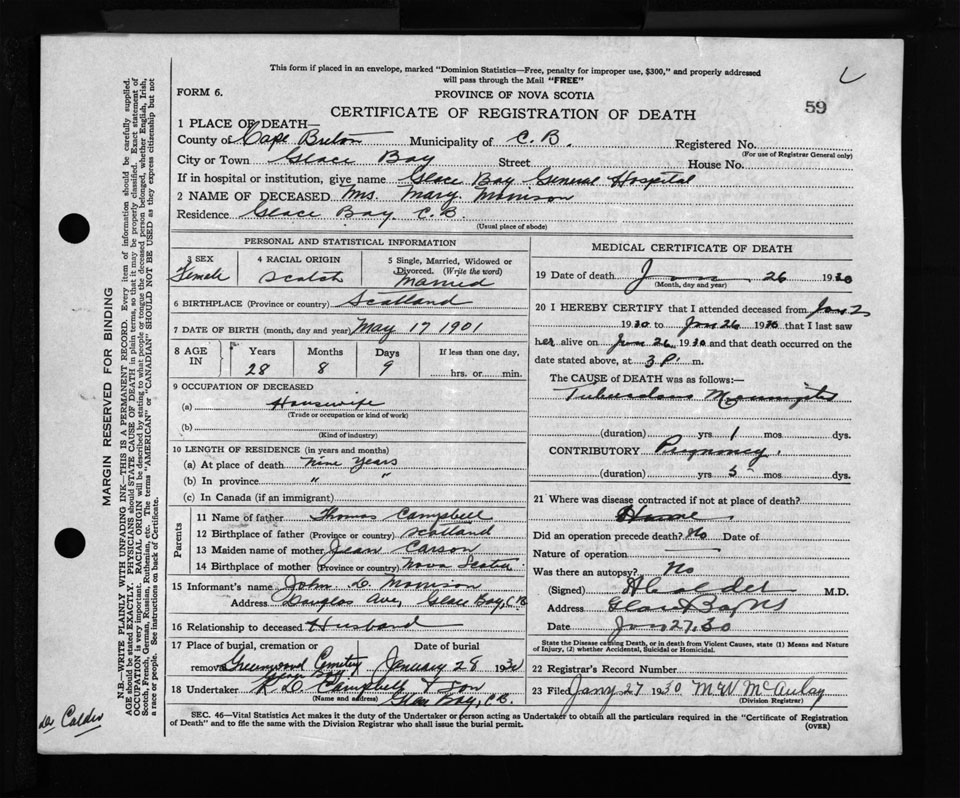 This form if placed in an envelope, marked "Dominion Statistics—Free, penalty for improper use, $300," and properly addressed
will pass through the Mail "FREE"
FORM 6.
PROVINCE OF NOVA SCOTIA
59
CERTIFICATE OF REGISTRATION OF DEATH
1 PLACE OF DEATH—
County of Cape Breton Municipality of C. B. Registered No.
(For use of Registrar General only)
City or Town Glace Bay Street House No.
If in hospital or institution, give name Glace Bay General Hospital
2 NAME OF DECEASED Mrs. Mary Morrison
Residence Glace Bay. C.B.
(Usual place of abode)
PERSONAL AND STATISTICAL INFORMATION
3 SEX Female
4 RACIAL ORIGIN Scotch
5 Single, Married, Widowed or Divorced. (Write the word) Married
6 BIRTHPLACE (Province or country) Scotland
7 DATE OF BIRTH (month, day and year) May 17 1901
8 AGE IN Years Months Days If less than one day,
28 8 9 hrs. or min.
9 OCCUPATION OF DECEASED
(a) Housewife
(Trade or occupation or kind of work)
(b)
(Kind of industry)
10 LENGTH OF RESIDENCE (in years and months)
(a) At place of death Nine Years
(b) In province " "
(c) In Canada (if an immigrant)
Parents
11 Name of father Thomas Campbell
12 Birthplace of father (Province or country) Scotland
13 Maiden name of mother Jean Carson
14 Birthplace of mother (Province or country) Nova Scotia
15 Informant's name John C. Morrison
Address Douglas Ave, Glace Bay, C.B.
16 Relationship to deceased Husband
17 Place of burial, cremation or Date of burial
removal Greenwood Cemetery January 28 1930
Glace Bay
18 Undertaker Campbell & Son
(Name and address) Glace Bay, C.B.
MEDICAL CERTIFICATE OF DEATH
19 Date of death 26 1930
(Month, day and year)
20 I HEREBY CERTIFY that I attended deceased from Jan 2
1930 to Jan 26 1930 that I last saw
her alive on Jan 26 1930 and that death occurred on the
date stated above, at 3 P. m.
The CAUSE of DEATH was as follows:—
Tuberculous Meningitis
(duration) yrs 1 mos dys.
CONTRIBUTORY Pregnancy.
(duration) yrs 5 mos dys.
21 Where was disease contracted if not at place of death?
Home.
Did an operation precede death? No Date of
Nature of operation
Was there an autopsy? No
(Signed) Calder M.D.
Address Glace Bay NS
Date Jan 27. 30
State the Disease causing Death, or in death from Violent Causes, state (1) Means and Nature
of Injury, (2) whether Accidental, Suicidal or Homicidal.
22 Registrar's Record Number
23 Filed Jany 27 1930 M W McAulay
(Division Registrar)
SEC. 46—Vital Statistics Act makes it the duty of the Undertaker or person acting as Undertaker to obtain all the particulars required in the "Certificate of Registration
of Death" and to file the same with the Division Registrar who shall issue the burial permit.
(OVER)
MARGIN RESERVED FOR BINDING
N.B.—WRITE PLAINLY WITH UNFADING INK—THIS IS A PERMANENT RECORD. Every item of information should be carefully supplied.
AGE should be stated EXACTLY. PHYSICIANS should STATE CAUSE OF DEATH in plain terms, so that it may be properly classified. Exact statement of
OCCUPATION is very important. RACIAL ORIGIN will be described by stating to what people or tongue the deceased person belonged, whether English, Irish,
Scotch, French, German, Russian, Ruthenian, etc. The terms "AMERICAN" or "CANADIAN" SHOULD NOT BE USED as they express citizenship but not
a race or people. See instructions on back of Certificate.
Dr Calder